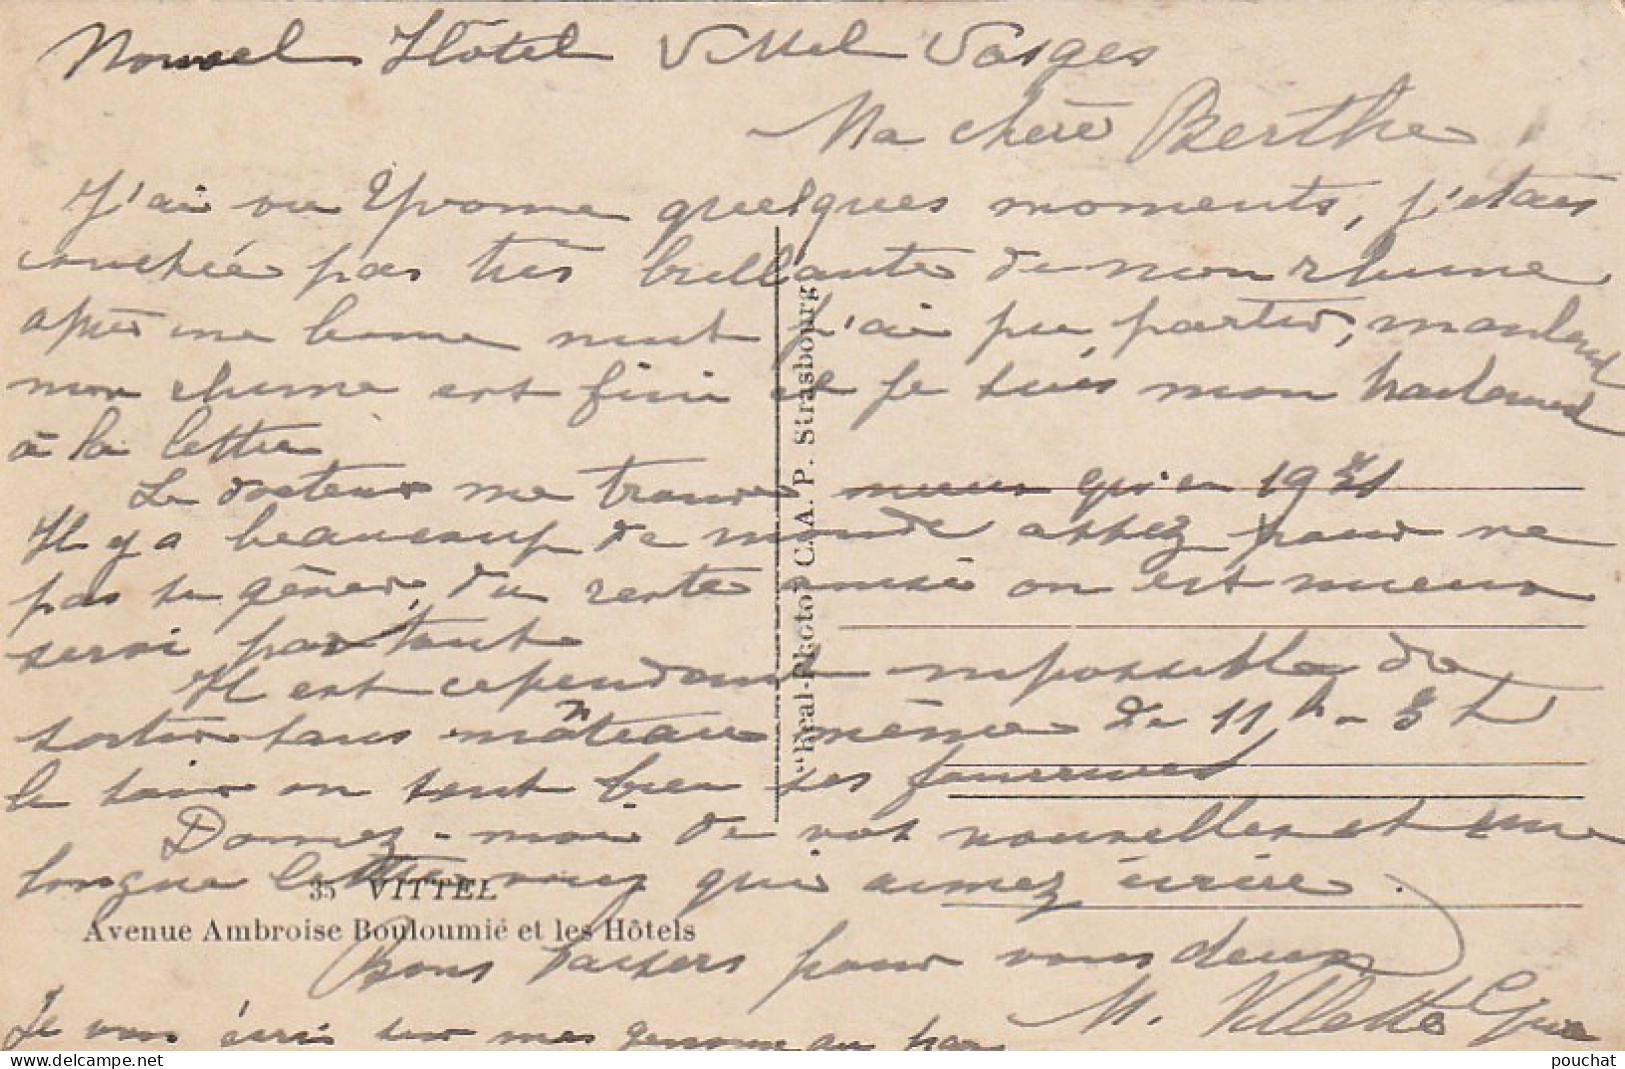 Nouvel Hôtel Vittel Vosges
Ma chère Berthe
J'ai vu Yvonne quelques moments, j'étais
couchée pas très brillante de mon rhume
après une bonne nuit j'ai pu partir, maintenant
mon rhume est fini et je suis mon traitement
à la lettre
Le docteur me trouve mieux qu'en 1931
Il y a beaucoup de monde assez pour ne
pas se gêner, du reste on est mieux
servi partout
Il est cependant impossible de
sortir sans manteau même de 11h - 5h
le soir on sent bien ses fourrures
Donnez-moi de vos nouvelles et une
longue lettre vous qui aimez écrire.
Bons baisers pour vous deux
M. Villette
Je vous écris sur mes genoux au parc
35 VITTEL
Avenue Ambroise Bouloumié et les Hôtels
"Réal-Photo" C. A. P. Strasbourg
pouchat